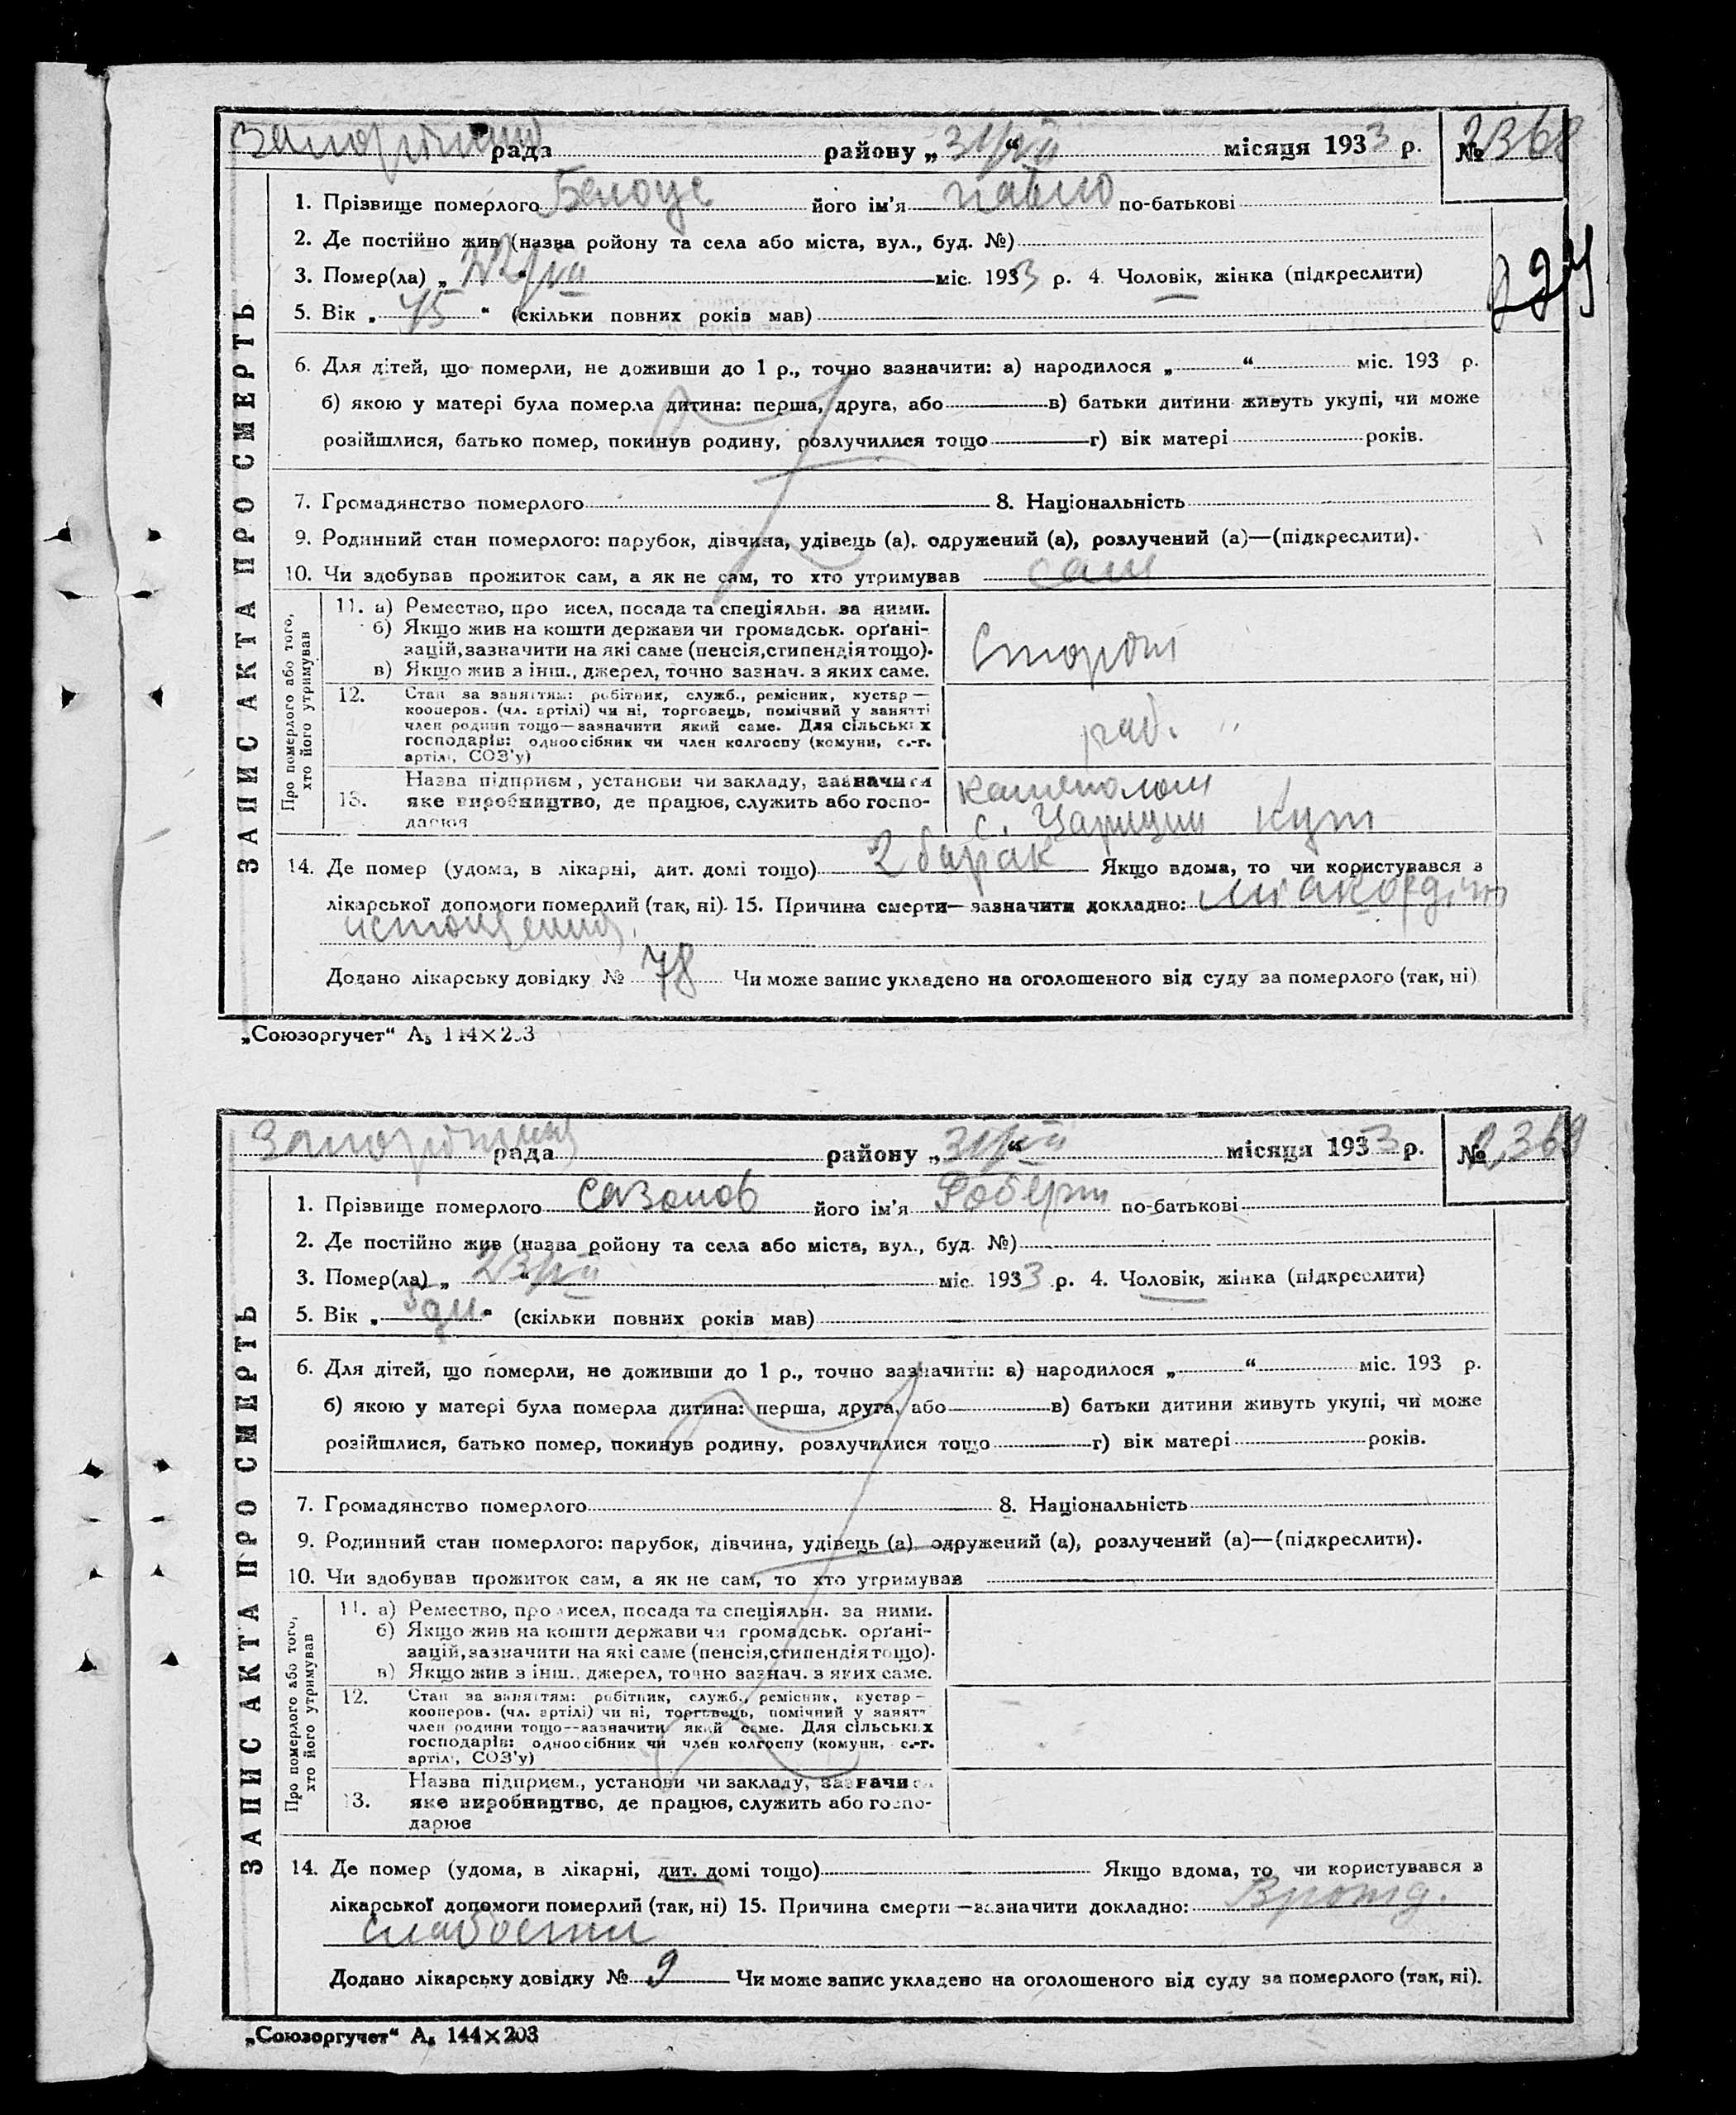 рада району „31/VII“ місяця 1933 р. № 2368
1. Прізвище померлого його ім'я Павло по-батькові
2. Де постійно жив (назва ройону та села або міста, вул., буд. №)
3. Помер(ла) „ “ міс. 1933 р. 4. Чоловік, жінка (підкреслити)
224
5. Вік „ 45 “ (скільки повних років мав)
6. Для дітей, що померли, не доживши до 1 р., точно зазначити: а) народилося „ “ міс. 193 р.
б) якою у матері була померла дитина: перша, друга, або в) батьки дитини живуть укупі, чи може
розійшлися, батько помер, покинув родину, розлучилися тощо г) вік матері років.
7. Громадянство померлого 8. Національність
9. Родинний стан померлого: парубок, дівчина, удівець (а), одружений (а), розлучений (а)—(підкреслити).
10. Чи здобував прожиток сам, а як не сам, то хто утримував сам
ЗАПИС АКТА ПРО СМЕРТЬ
Про померлого або того,
хто його утримував
11. а) Ремество, про исел, посада та спеціяльн. за ними.
б) Якщо жив на кошти держави чи громадськ. орґані-
зацій, зазначити на які саме (пенсія, стипендія тощо).
в) Якщо жив з інш., джерел, точно зазнач. з яких саме.
Сторож
12. Стан за заняттям: робітник, служб., ремісник, кустар—
кооперов. (чл. артілі) чи ні, торговець, помічний у занятті
член родини тощо—зазначити який саме. Для сільських
господарів: одноосібник чи член колгоспу (комуни, с.-г.
артілі, СОЗ'у)
раб.
Назва підприєм., установи чи закладу, зазначити
13. яке виробництво, де працює, служить або госпо-
дарює
каменолом
с. Царицин Кут
14. Де помер (удома, в лікарні, дит. домі тощо) 2 барак Якщо вдома, то чи користувався з
лікарської допомоги померлий (так, ні). 15. Причина смерти—зазначити докладно: миакордит
истощения
Додано лікарську довідку № 78 Чи може запис укладено на оголошеного від суду за померлого (так, ні)
„Союзоргучет“ А₅ 144×203
рада району „31/VII“ місяця 1933 р. № 2369
1. Прізвище померлого Сазонов його ім'я Роберт по-батькові
2. Де постійно жив (назва ройону та села або міста, вул., буд. №)
3. Помер(ла) „ 23/VII “ міс. 1933 р. 4. Чоловік, жінка (підкреслити)
5. Вік „ “ (скільки повних років мав)
6. Для дітей, що померли, не доживши до 1 р., точно зазначити: а) народилося „ “ міс. 193 р.
б) якою у матері була померла дитина: перша, друга, або в) батьки дитини живуть укупі, чи може
розійшлися, батько помер, покинув родину, розлучилися тощо г) вік матері років.
7. Громадянство померлого 8. Національність
9. Родинний стан померлого: парубок, дівчина, удівець (а) одружений (а), розлучений (а)—(підкреслити).
10. Чи здобував прожиток сам, а як не сам, то хто утримував
ЗАПИС АКТА ПРО СМЕРТЬ
Про померлого або того,
хто його утримував
11. а) Ремество, про исел, посада та спеціяльн. за ними.
б) Якщо жив на кошти держави чи громадськ. орґані-
зацій, зазначити на які саме (пенсія, стипендія тощо).
в) Якщо жив з інш., джерел, точно зазнач. з яких саме.
12. Стан за заняттям: робітник, служб., ремісник, кустар—
кооперов. (чл. артілі) чи ні, торговець, помічний у занятт
член родини тощо—зазначити який саме. Для сільських
господарів: одноосібник чи член колгоспу (комуни, с.-г.
артілі, СОЗ'у)
Назва підприєм., установи чи закладу, зазначи
13. яке виробництво, де працює, служить або госпо-
дарює
14. Де помер (удома, в лікарні, дит. домі тощо) Якщо вдома, то чи користувався в
лікарської допомоги померлий (так, ні) 15. Причина смерти—зазначити докладно: Врожд.
слабости
Додано лікарську довідку № 9 Чи може запис укладено на оголошеного від суду за померлого (так, ні).
„Союзоргучет“ А₅ 144×203